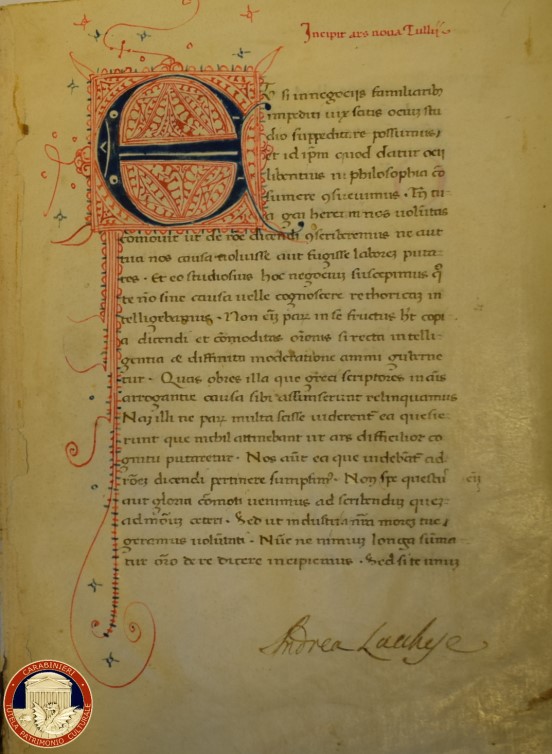 Incipit ars noua Tullij
Et si in negocijs familiarib9
impediti uix satis ocium stu
dio suppeditare possumus
et id ip̄m quod datur ocij
libentius in philosophia cō
sumere 9sueuimus · tn̄ tu
a gai herenni nos uolūtas
cōmouit ut de rōe dicendi 9scriberemus ne aut
tua nos causa noluisse aut fugisse labores puta
res · Et eo studiosius hoc negociū suscepimus
te nō sine causa uelle cognoscere rethoricam in
telligebamus · Non eī par in se fructus h̄t copi
a dicendi et cōmoditas or̄onis si recta intelli
gentia et diffinita moderatione animi guberne
tur · Quas obres illa que greci scriptores inanis
arrogantie causa sibi assumserunt relinquamus
Nam illi ne par multa scisse uiderent ea quesie
runt que nichil attinebant ut ars difficilior co
gnitu putaretur · Nos aūt ea que uidebant ad
rōem dicendi pertinere sumpsim9 · Non spe questus
aut gloria cōmoti uenimus ad scribendū quem
admōuz ceteri · Sed ut industria nr̄a morem tue
geramus uolūtati · Nūc ne nimium longa suma
tur or̄o de re dicere incipiemus · Sed si te unum
Andrea Lucchese
CARABINIERI
TUTELA PATRIMONIO CULTURALE